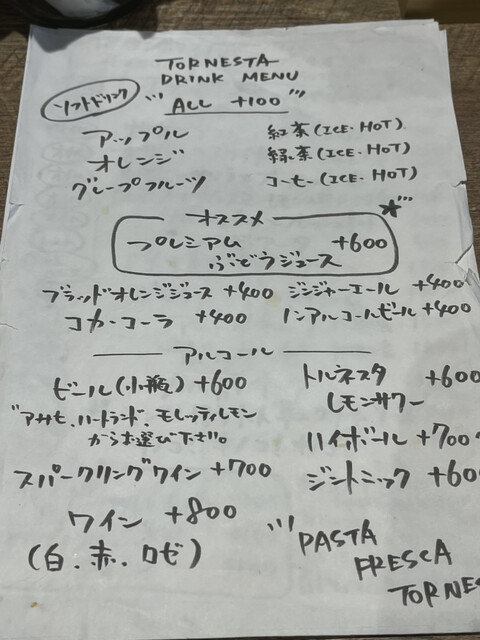 TORNESTA
DRINK MENU
ソフトドリンク
ALL +100
アップル 紅茶(ICE・HOT)
オレンジ 緑茶(ICE・HOT)
グレープフルーツ コーヒー(ICE・HOT)
オススメ
プレミアム +600
ぶどうジュース
ブラッドオレンジジュース +400 ジンジャーエール +400
コカ・コーラ +400 ノンアルコールビール +400
アルコール
ビール(小瓶) +600 トルネスタ +600
レモンサワー
"アサヒ、ハートランド、モレッティレモン
からお選び下さい。
ハイボール +700
スパークリングワイン +700 ジントニック +600
ワイン +800
(白.赤.ロゼ)
PASTA
FRESCA
TORNES